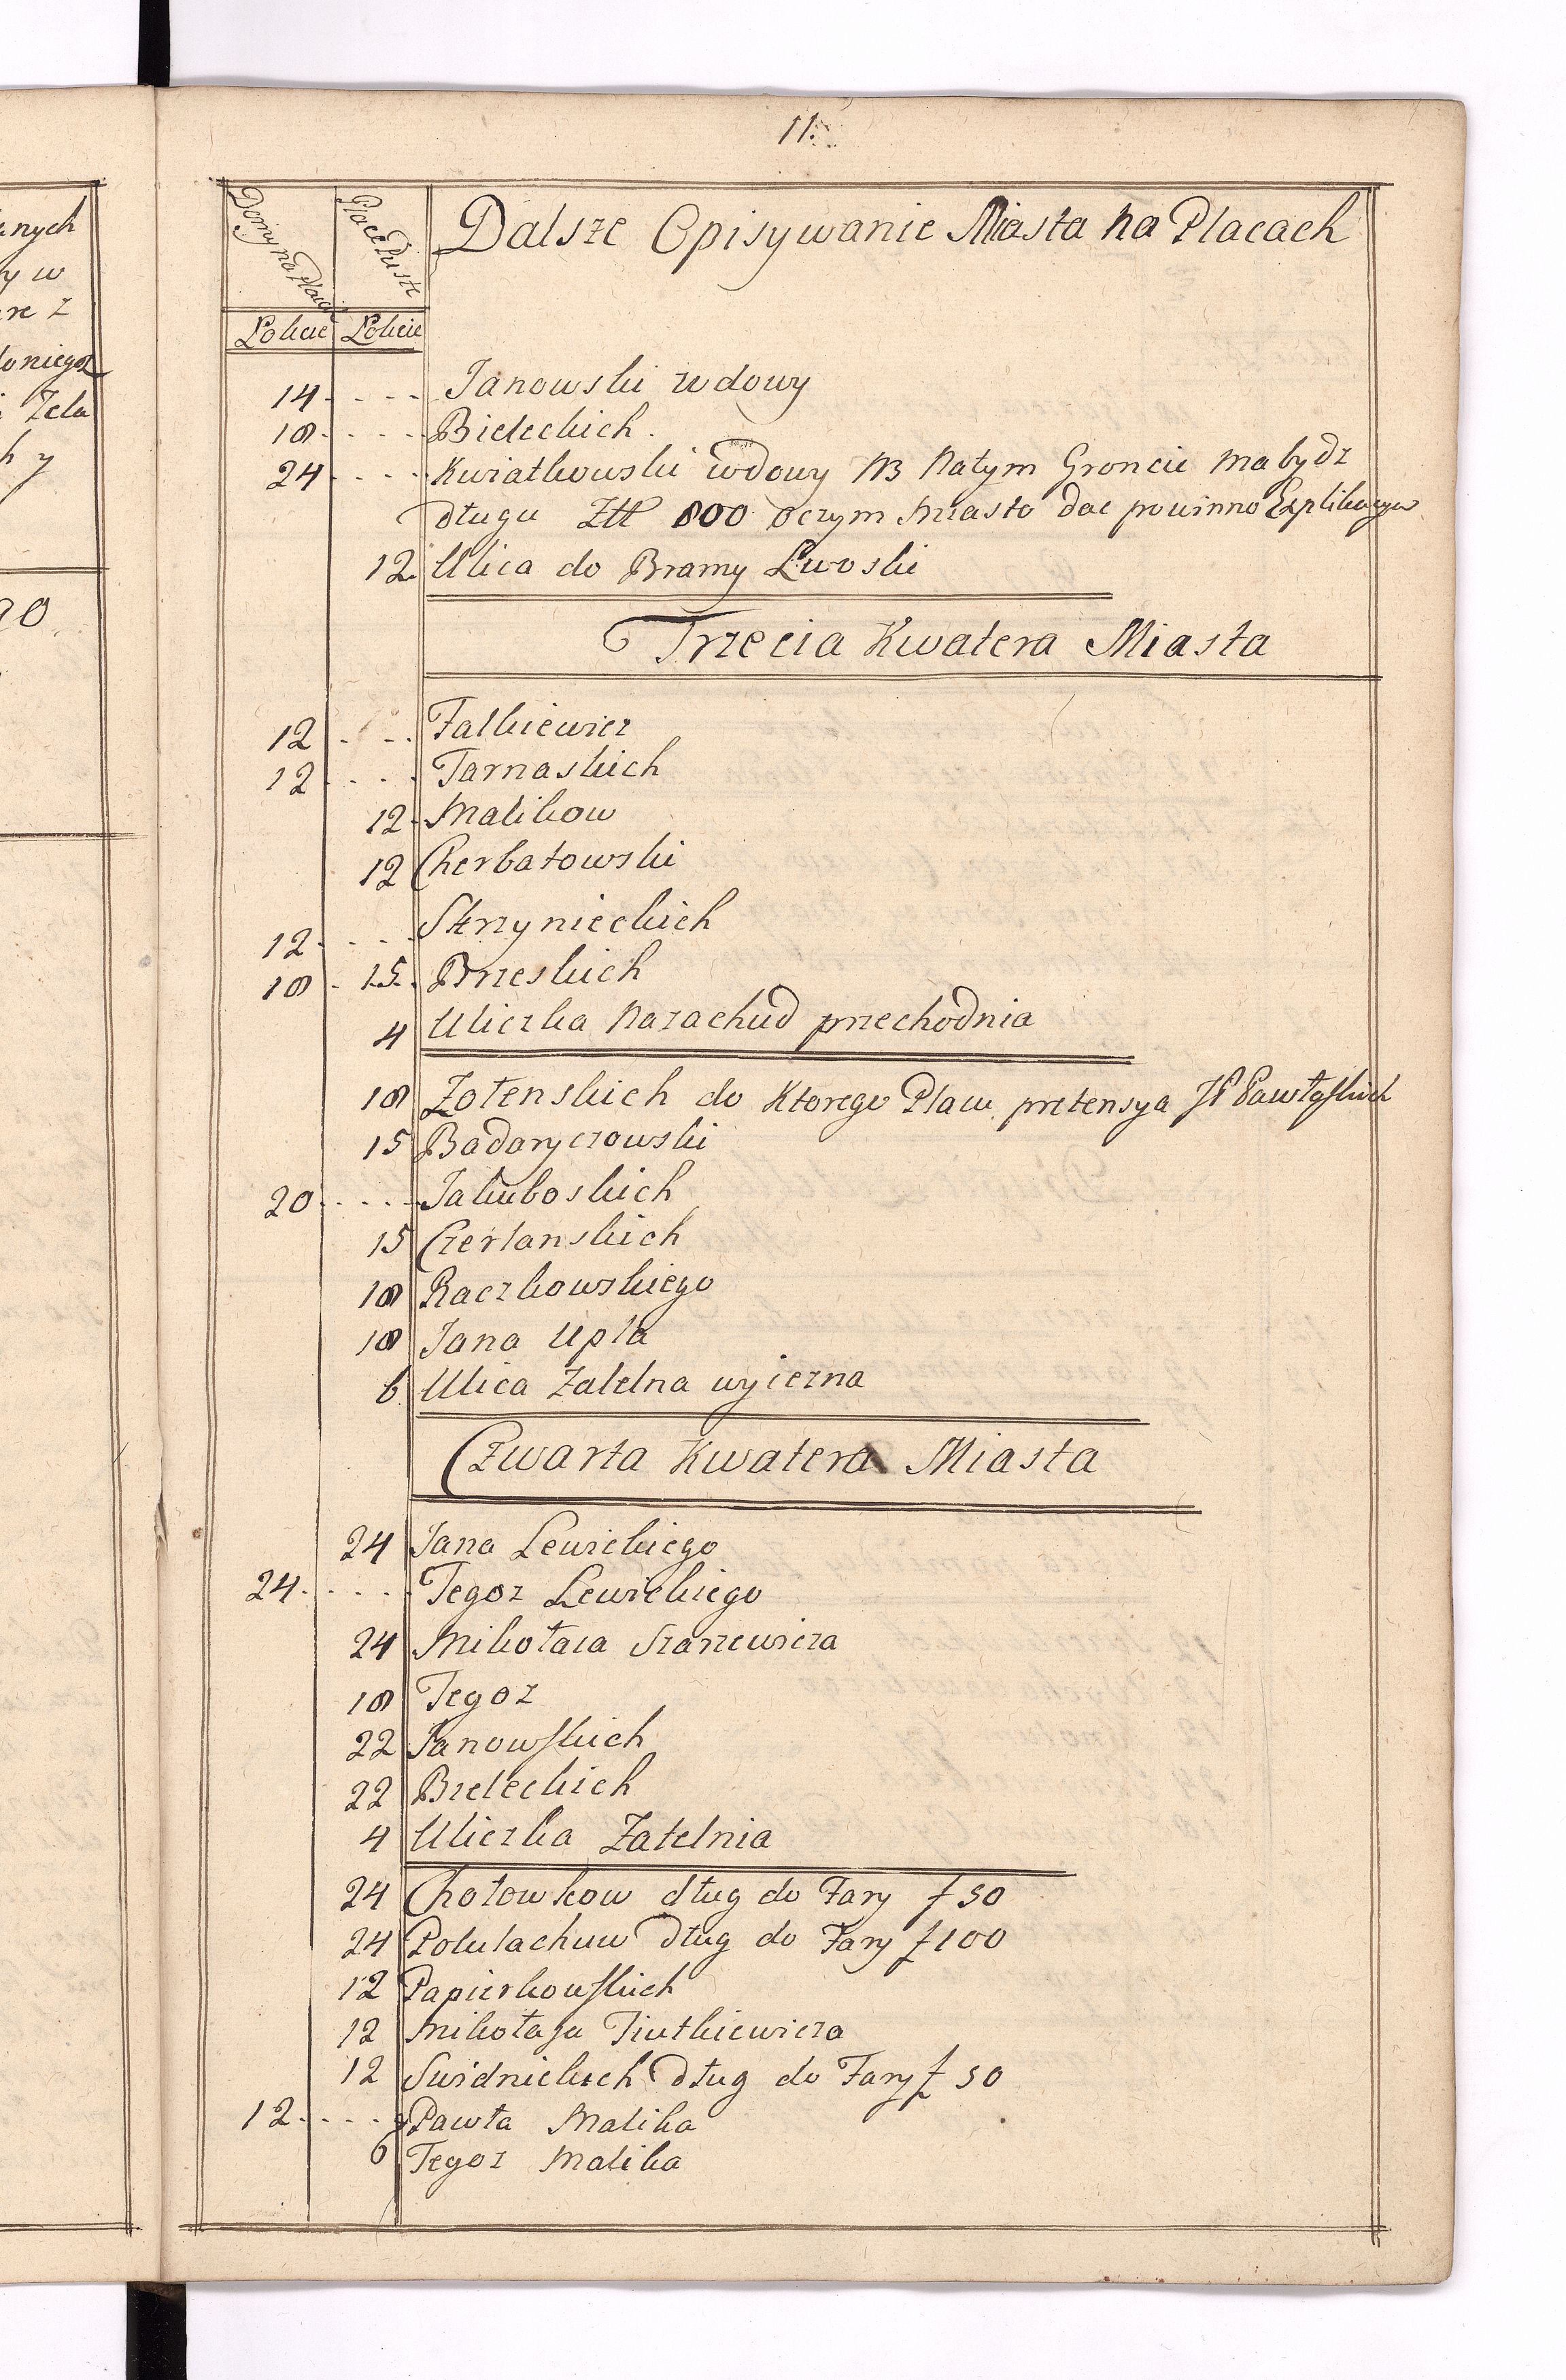 11.
Domy na Placach
Place Puste
Dalsze Opisywanie Miasta na Placach
Łokcie Łokcie
14 - - - Janowski wdowy
18 - - - Bieleckich.
24 - - - Kwiatkowski wdowy NB na tym Groncie ma bydz
długu Złł 800 o czym Miasto dac powinno Explikacyą
12. Ulica do Bramy Lwoski
Trzecia Kwatera Miasta
12 - - - Falkiewicz
12 - - - Tarnaskich
12 - Malikow
12 Cherbatowski
12 - - - Skrzynieckich
18 - 15. Brzeskich
4 Uliczka na zachud przechodnia
18 Zołenskich do Ktorego Placu pretensya JP Pawłoskich
15 Badaryczowski
20 - - - Jakuboskich
15 Czerlanskich
18 Raczkowskiego
18 Jana Upla
6 Ulica Zatelna wyiezna
Czwarta Kwatera Miasta
24 Jana Lewickiego
24 - - - Tegoz Lewickiego
24 Mikołaia Szarzewicza
18 Tegoz
22 Janowskich
22 Bieleckich
4 Uliczka Zatelnia
24 Chołowkow dług do Fary f 50
24 Polulachuw dług do Fary f 100
12 Papierkowskich
12 Mikołaja Fiutkiewicza
12 Swidnickich dług do Fary f 50
12 - - - Pawła Malika
6 Tegoz Malika